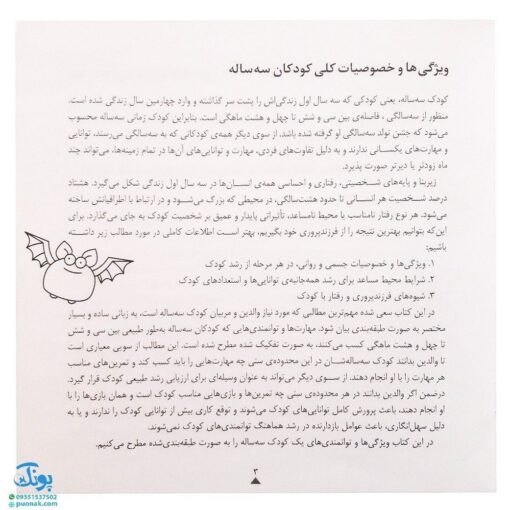 ویژگی‌ها و خصوصیات کلی کودکان سه‌ساله
کودک سه‌ساله، یعنی کودکی که سه سال اول زندگی‌اش را پشت سر گذاشته و وارد چهارمین سال زندگی شده است.
منظور از سه‌سالگی، فاصله‌ی بین سی و شش تا چهل و هشت ماهگی است. بنابراین کودک زمانی سه‌ساله محسوب
می‌شود که جشن تولد سه‌سالگی او گرفته شده باشد. از سوی دیگر همه‌ی کودکانی که به سه‌سالگی می‌رسند، توانایی
و مهارت‌های یکسانی ندارند و به دلیل تفاوت‌های فردی، مهارت و توانایی‌های آن‌ها در تمام زمینه‌ها، می‌تواند چند
ماه زودتر یا دیرتر صورت پذیرد.
زیربنا و پایه‌های شخصیتی، رفتاری و احساسی همه‌ی انسان‌ها در سه سال اول زندگی شکل می‌گیرد. هشتاد
درصد شخصیت هر انسانی تا حدود هشت‌سالگی، در محیطی که بزرگ می‌شود و در ارتباط با اطرافیانش ساخته
می‌شود. هر نوع رفتار نامناسب یا محیط نامساعد، تأثیراتی پایدار و عمیق بر شخصیت کودک به جای می‌گذارد. برای
این‌که بتوانیم بهترین نتیجه را از فرزندپروری خود بگیریم، بهتر است اطلاعات کاملی در مورد مطالب زیر داشته
باشیم:
۱. ویژگی‌ها و خصوصیات جسمی و روانی، در هر مرحله از رشد کودک
۲. شرایط محیط مساعد برای رشد همه‌جانبه‌ی توانایی‌ها و استعدادهای کودک
۳. شیوه‌های فرزندپروری و رفتار با کودک
در این کتاب سعی شده مهم‌ترین مطالبی که مورد نیاز والدین و مربیان کودک سه‌ساله است، به زبانی ساده و بسیار
مختصر به صورت طبقه‌بندی بیان شود. مهارت‌ها و توانمندی‌هایی که کودکان سه‌ساله به‌طور طبیعی بین سی و شش
تا چهل و هشت ماهگی کسب می‌کنند، به صورت تفکیک شده مطرح شده است. این مطالب از سویی معیاری است
تا والدین بدانند کودک سه‌ساله‌شان در این محدوده‌ی سنی چه مهارت‌هایی را باید کسب کند و تمرین‌های مناسب
هر مهارت را با او انجام دهند. از سوی دیگر می‌تواند به عنوان وسیله‌ای برای ارزیابی رشد طبیعی کودک قرار گیرد.
درضمن اگر والدین بدانند در هر محدوده‌ی سنی چه تمرین‌ها و بازی‌هایی مناسب کودک است و همان بازی‌ها را با
او انجام دهند، باعث پرورش کامل توانایی‌های کودک می‌شوند و توقع کاری بیش از توانایی کودک را ندارند و یا به
دلیل سهل‌انگاری، باعث عوامل بازدارنده در رشد هماهنگ توانمندی‌های کودک نمی‌شوند.
در این کتاب ویژگی‌ها و توانمندی‌های یک کودک سه‌ساله را به صورت طبقه‌بندی‌شده مطرح می‌کنیم.
۳
پونک
09351537502
puonak.com